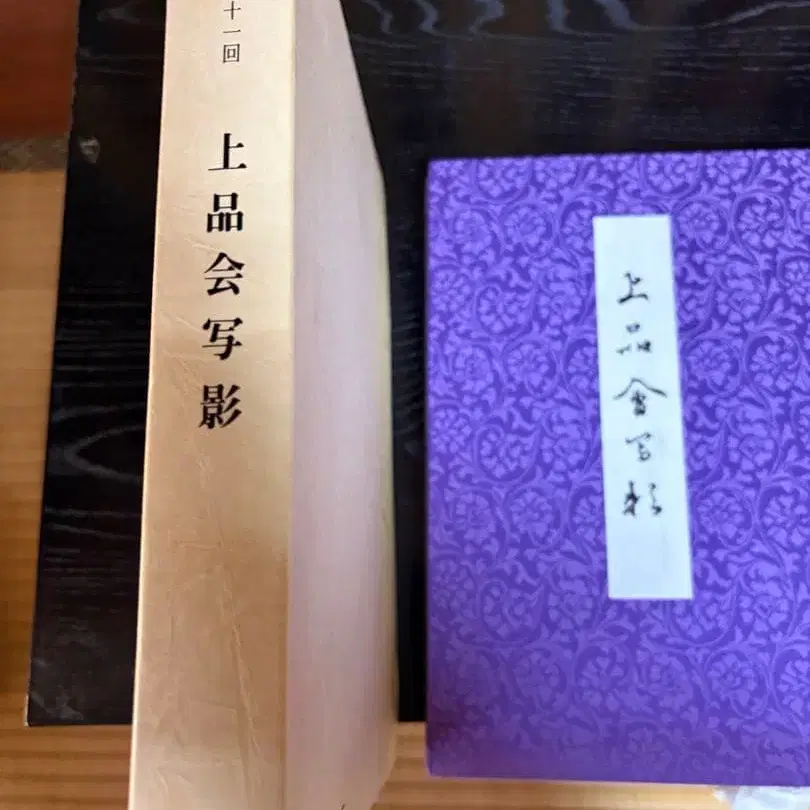 十一回
上品会写影
上品會写影